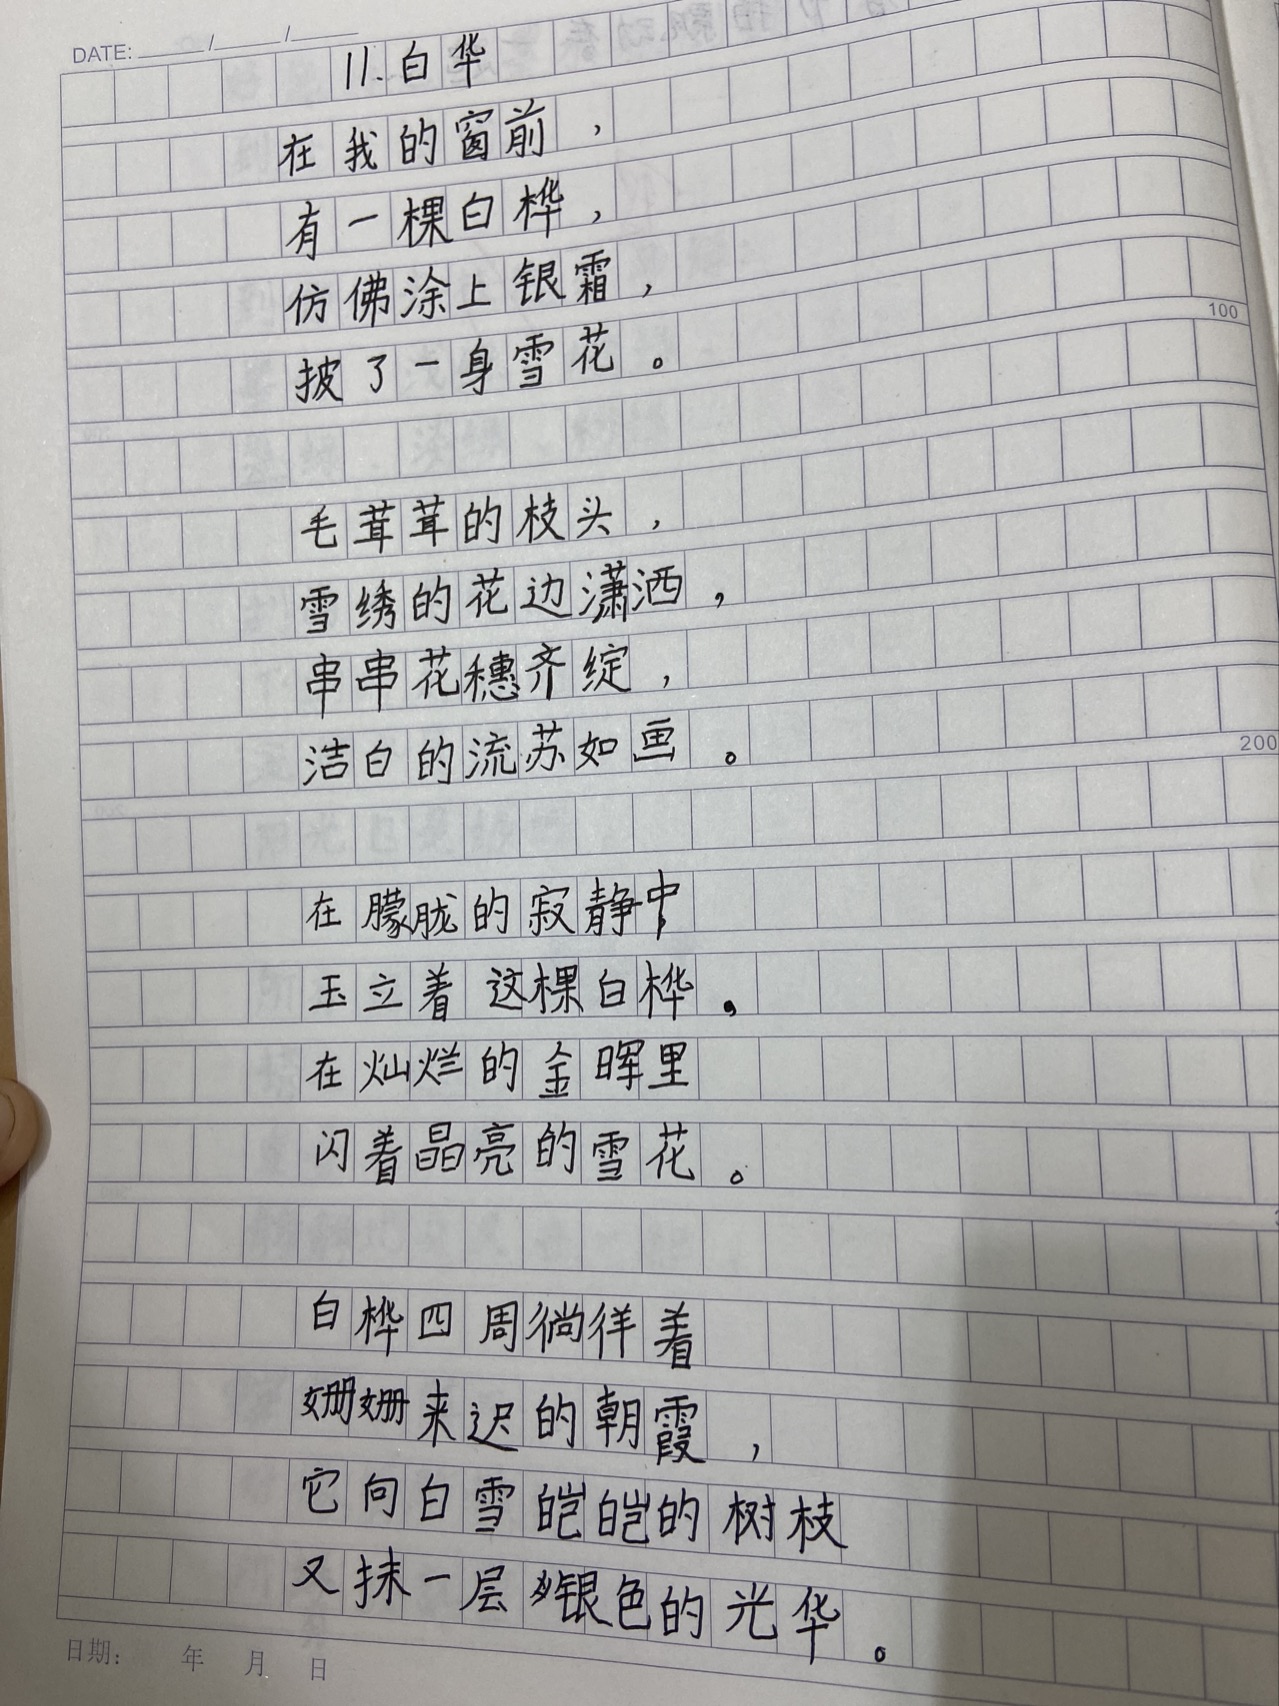 DATE: / /
11. 白华
在我的窗前，
有一棵白桦，
仿佛涂上银霜，
100
披了一身雪花。
毛茸茸的枝头，
雪绣的花边潇洒，
串串花穗齐绽，
洁白的流苏如画。
200
在朦胧的寂静中
玉立着这棵白桦，
在灿烂的金晖里
闪着晶亮的雪花。
白桦四周徜徉着
姗姗来迟的朝霞，
它向白雪皑皑的树枝
又抹一层银色的光华。
日期： 年 月 日